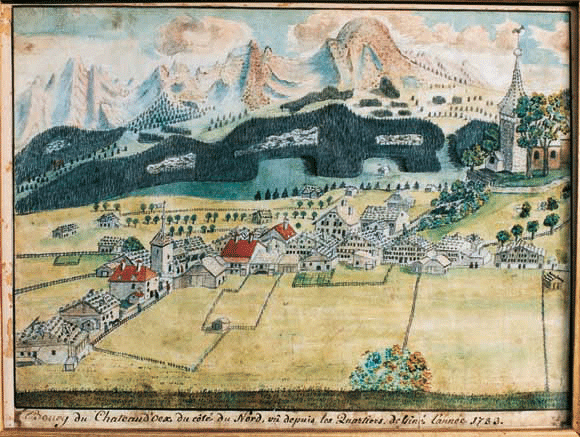 Bourg du Chateaud'oex du côté du Nord, vû depuis les Quartiers, desiné l'année 1753.